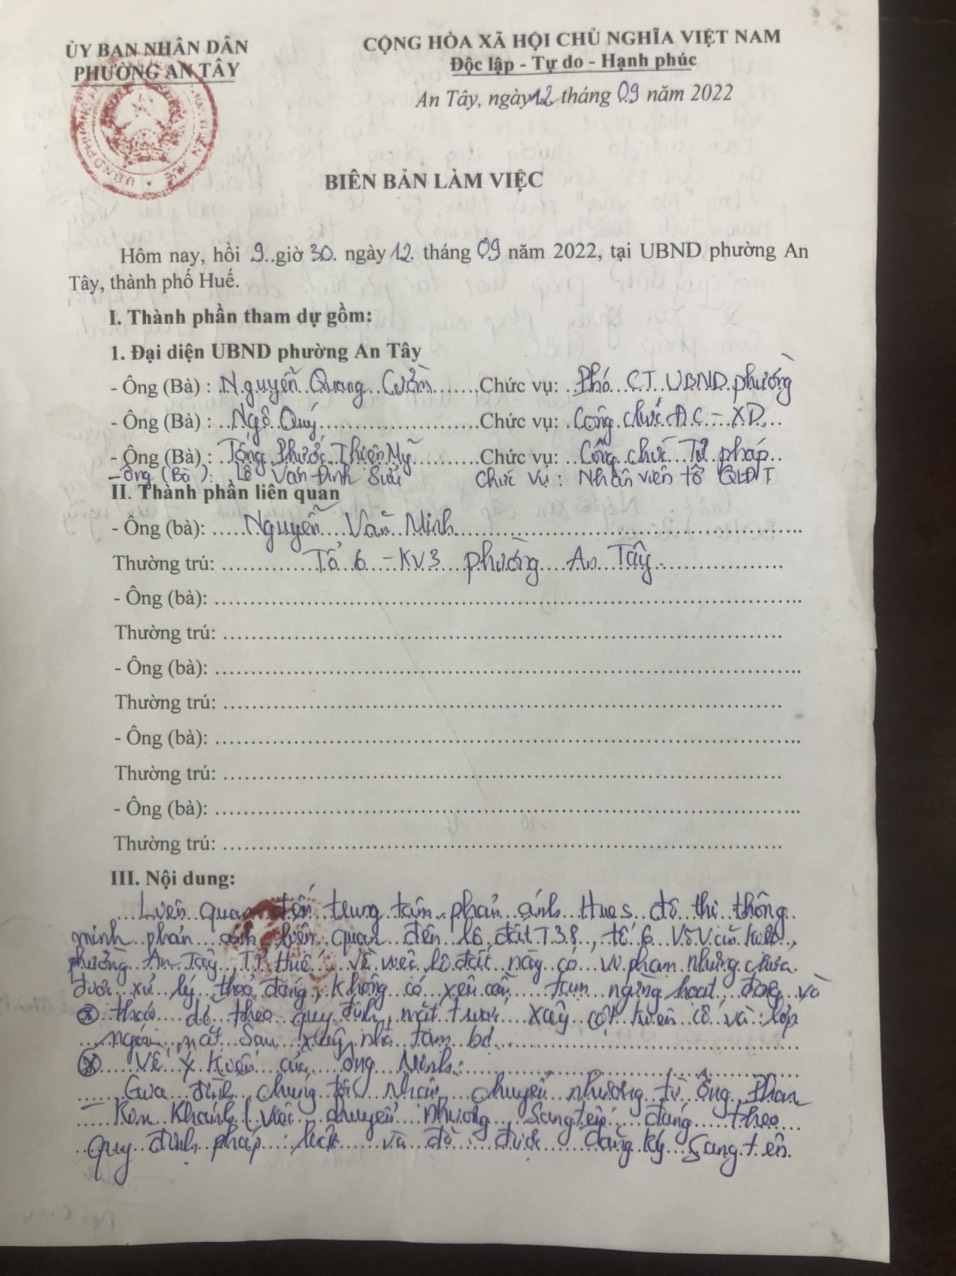 ỦY BAN NHÂN DÂN
PHƯỜNG AN TÂY
CỘNG HÒA XÃ HỘI CHỦ NGHĨA VIỆT NAM
Độc lập - Tự do - Hạnh phúc
An Tây, ngày 12 tháng 09 năm 2022
BIÊN BẢN LÀM VIỆC
Hôm nay, hồi 9 giờ 30 ngày 12 tháng 09 năm 2022, tại UBND phường An
Tây, thành phố Huế.
I. Thành phần tham dự gồm:
1. Đại diện UBND phường An Tây
- Ông (Bà) : Nguyễn Quang Chức vụ: Phó CT UBND phường
- Ông (Bà) : Ngô Quý Chức vụ: Công chức ĐC - XD
- Ông (Bà) : Tống Phước Thiện Mỹ Chức vụ: Công chức Tư pháp
- Ông (Bà) : Lê Văn Đình Chức vụ : Nhân viên tổ QLĐT
II. Thành phần liên quan
- Ông (bà): Nguyễn Văn Minh
Thường trú: Tổ 6 - KV3 phường An Tây
- Ông (bà):
Thường trú:
- Ông (bà):
Thường trú:
- Ông (bà):
Thường trú:
- Ông (bà):
Thường trú:
III. Nội dung:
Liên quan đến trung tâm phản ánh Hues đô thị thông
minh phản ánh liên quan đến lô đất T38, tổ 6
phường An Tây, TP Huế về việc lô đất này có vi phạm nhưng chưa
được xử lý thỏa đáng, không có yêu cầu tạm ngừng hoạt động và
tháo dỡ theo quy định, mặt trước xây cột và lợp
mặt sau xây nhà tạm bợ.
Về ý kiến của ông Minh:
Gia đình chúng tôi nhận chuyển nhượng từ ông Phan
Khánh (việc chuyển nhượng sang tên đúng theo
quy định pháp luật và đã được đăng ký sang tên